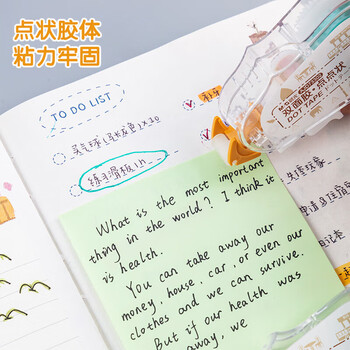 点状胶体
粘力牢固
TO DO LIST
练习滑板1h
双面胶·点点状
DOT TAPE
What is the most important
thing in the world? I think it
is health.
You can take away our
money, house, car, or even our
clothes and we can survive.
But if our health was
away, we